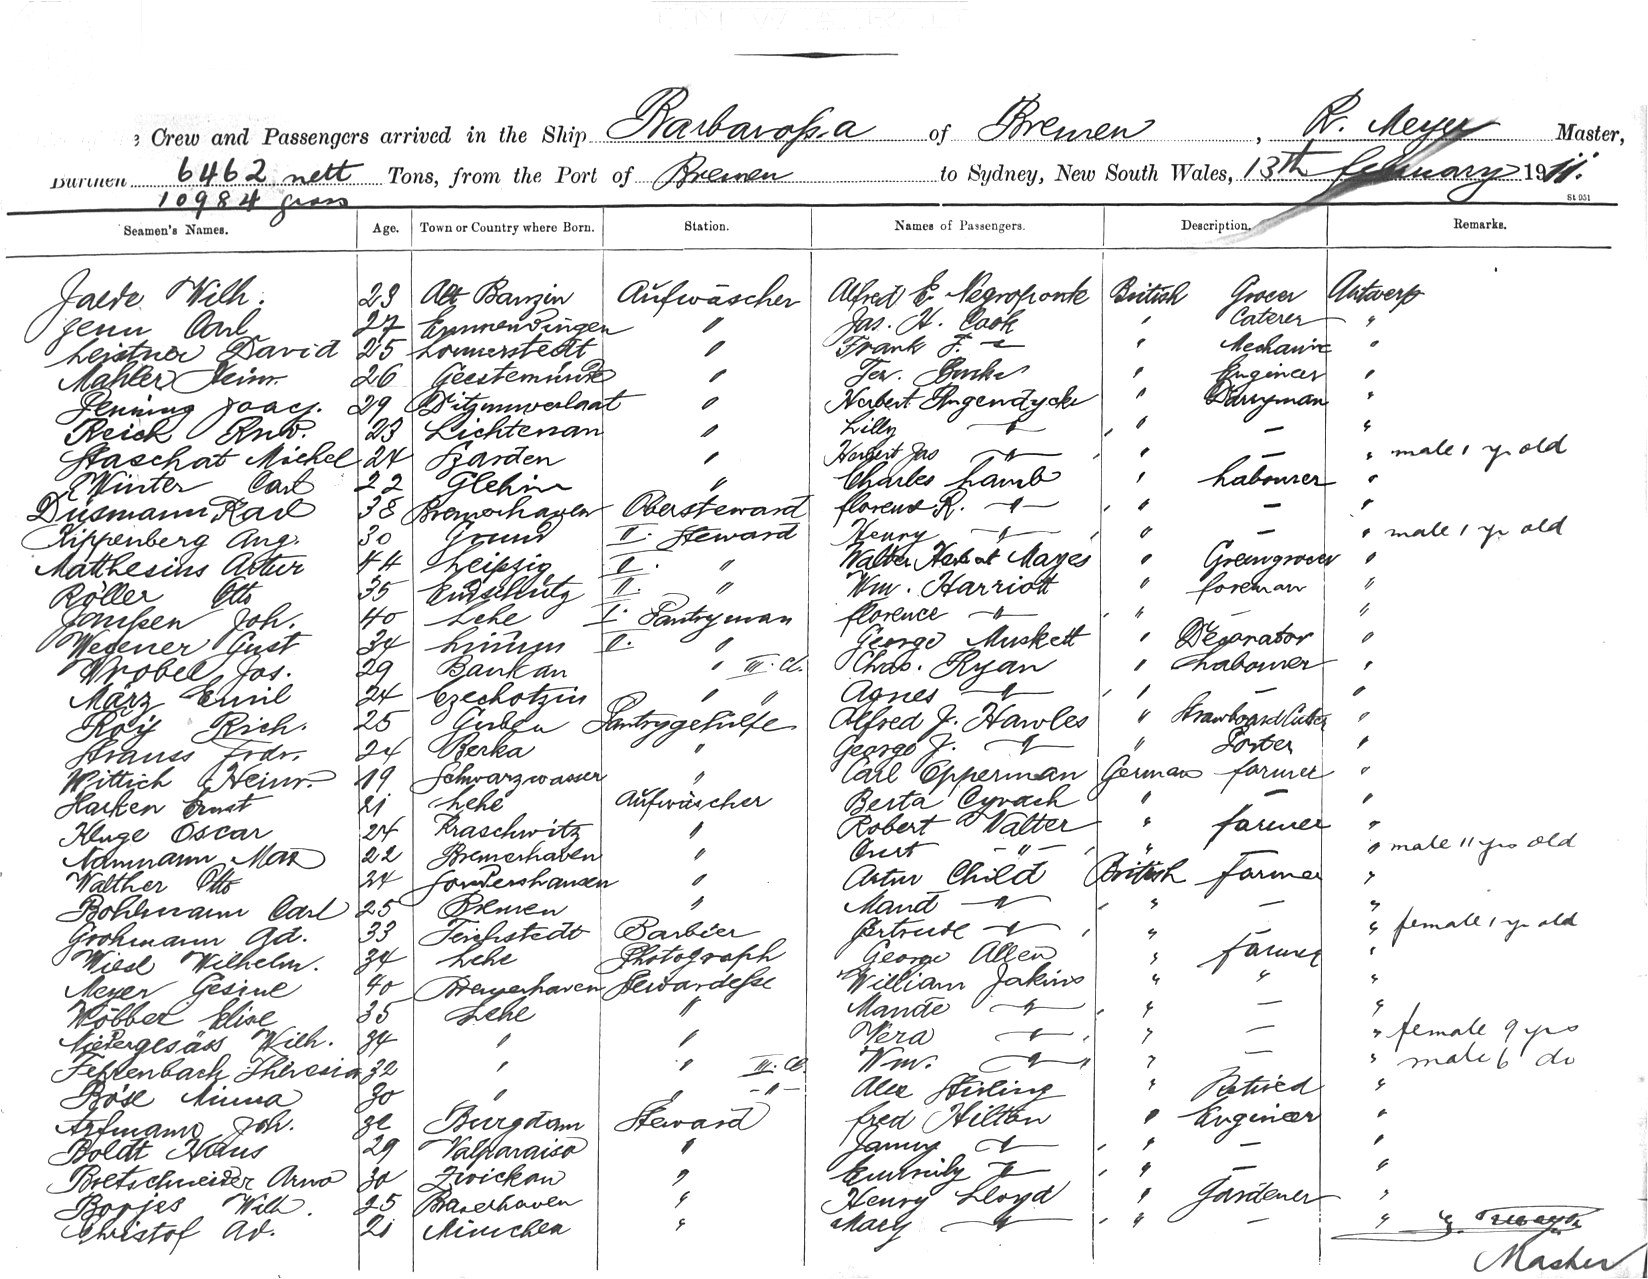 Crew and Passengers arrived in the Ship Barbarossa of Bremen, R. Meyer Master,
Burthen 6462 nett Tons, from the Port of Bremen to Sydney, New South Wales, 13th february 1911.
10984 gross
St 951
Seamen's Names. Age. Town or Country where Born. Station. Names of Passengers. Description. Remarks.
Wilh. 23 Alt Banzin Aufwäscher Alfred E. Negroponte British Grocer Antwerp
Jenn Carl 27 Emmendingen " Jas. H. Cook " Caterer "
Leistner David 25 Lonnerstedt " Frank F. " " Mechanic "
Mahler Heinr. 26 Geestemünde " " Engineer "
Penning Joach. 29 Ditzumverlaat " Herbert " Dairyman "
Reich Rud. 23 Lichtenau " Lilly " " — "
Staschat Michel 24 Szarden " Herbert Jas " " — " male 1 yr old
Winter Carl 22 Glehn " Charles Lamb " Labourer "
Dusmann Karl 38 Bremerhaven Obersteward florence R. " " — "
Kippenberg Aug. 30 Grund II. Steward Henry " " — " male 1 yr old
Matthesius Artur 44 Leipzig II. " Walter Herbert Mayes " Greengrocer "
Röller Otto 35 II. " Wm. Harriott " foreman "
Janssen Joh. 40 Lehe I. Pantryman florence " " "
Wegener Gust 34 II. " George Muskett " Decorator "
Wrobel Jos. 29 Baukau " III. Cl. Chas. Ryan " Labourer "
März Emil 24 Czechotzin " " Agnes " " — "
Rich. 25 Guben Pantrygehülfe Alfred J. Hawles " Strawboard Cutter "
Strauss Frdr. 24 Berka " George J. " " Porter "
Wittich Heinr. 19 Schwarzwasser " Carl Opperman German farmer "
Harken Ernst 21 Lehe Aufwäscher Berta " — "
Kluge Oscar 24 Kraschwitz " Robert Walter " farmer "
Naumann Max 22 Bremerhaven " Curt " " " male 11 yrs old
Walther Otto 24 Sondershausen " Artur Child British farmer "
Bohlmann Carl 25 Bremen " Maud " " — "
Grohmann Ad. 33 Teichstedt Barbier Gertrude " " — " female 1 yr old
Wiese Wilhelm. 34 Lehe Photograph George Allen " farmer "
Meyer Gesine 40 Bremerhaven Stewardesse William Jakins " " "
Wöbber Elise 35 Lehe " Maude " " — "
Niedergesäss Wilh. 34 " " Vera " " — " female 9 yrs
Fehrenbach Theresia 32 " " III. Cl. Wm. " " — " male 6 do
Röse Minna 30 " " " Alex Stirling " Retired "
Artmann Joh. Burgdam Steward fred Hilton " Engineer "
Boldt Hans 29 Valparaiso " " " — "
Bretschneider Arno 30 Zwickau " " " — "
Borjes Wilh. 25 Bremerhaven " Henry Lloyd " Gardener "
Christof Ad. 21 München " Mary " " — "
Master